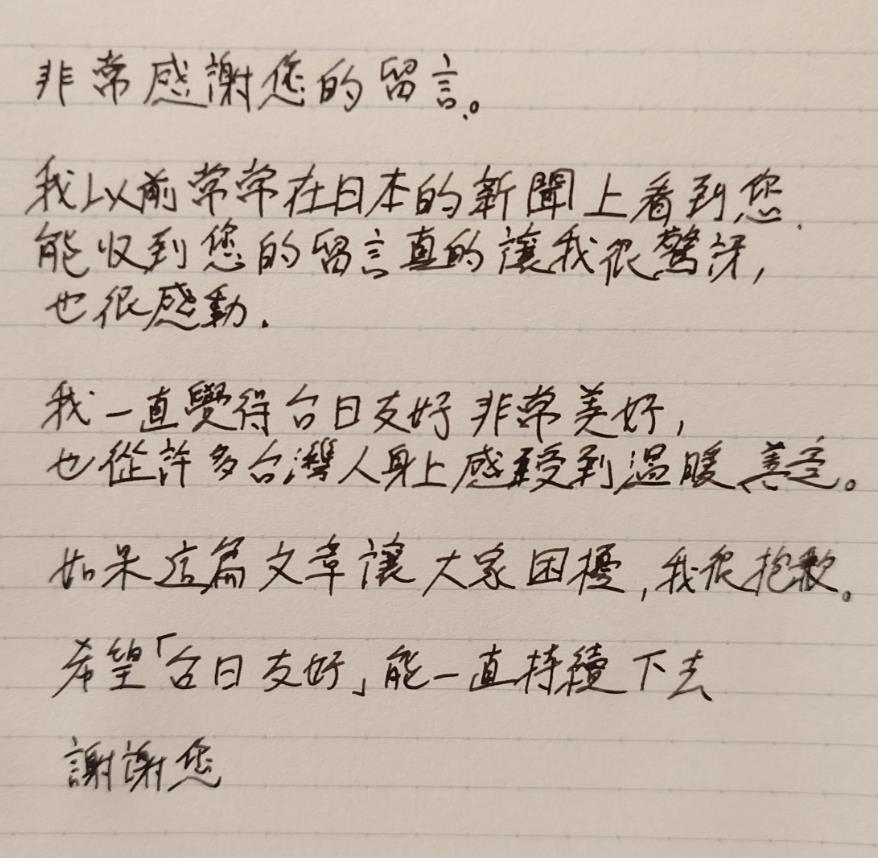 非常感謝您的留言。
我以前常常在日本的新聞上看到您,
能收到您的留言真的讓我很驚訝,
也很感動.
我一直覺得台日友好非常美好,
也從許多台灣人身上感受到溫暖善意。
如果這篇文章讓大家困擾,我很抱歉。
希望「台日友好」能一直持續下去
謝謝您